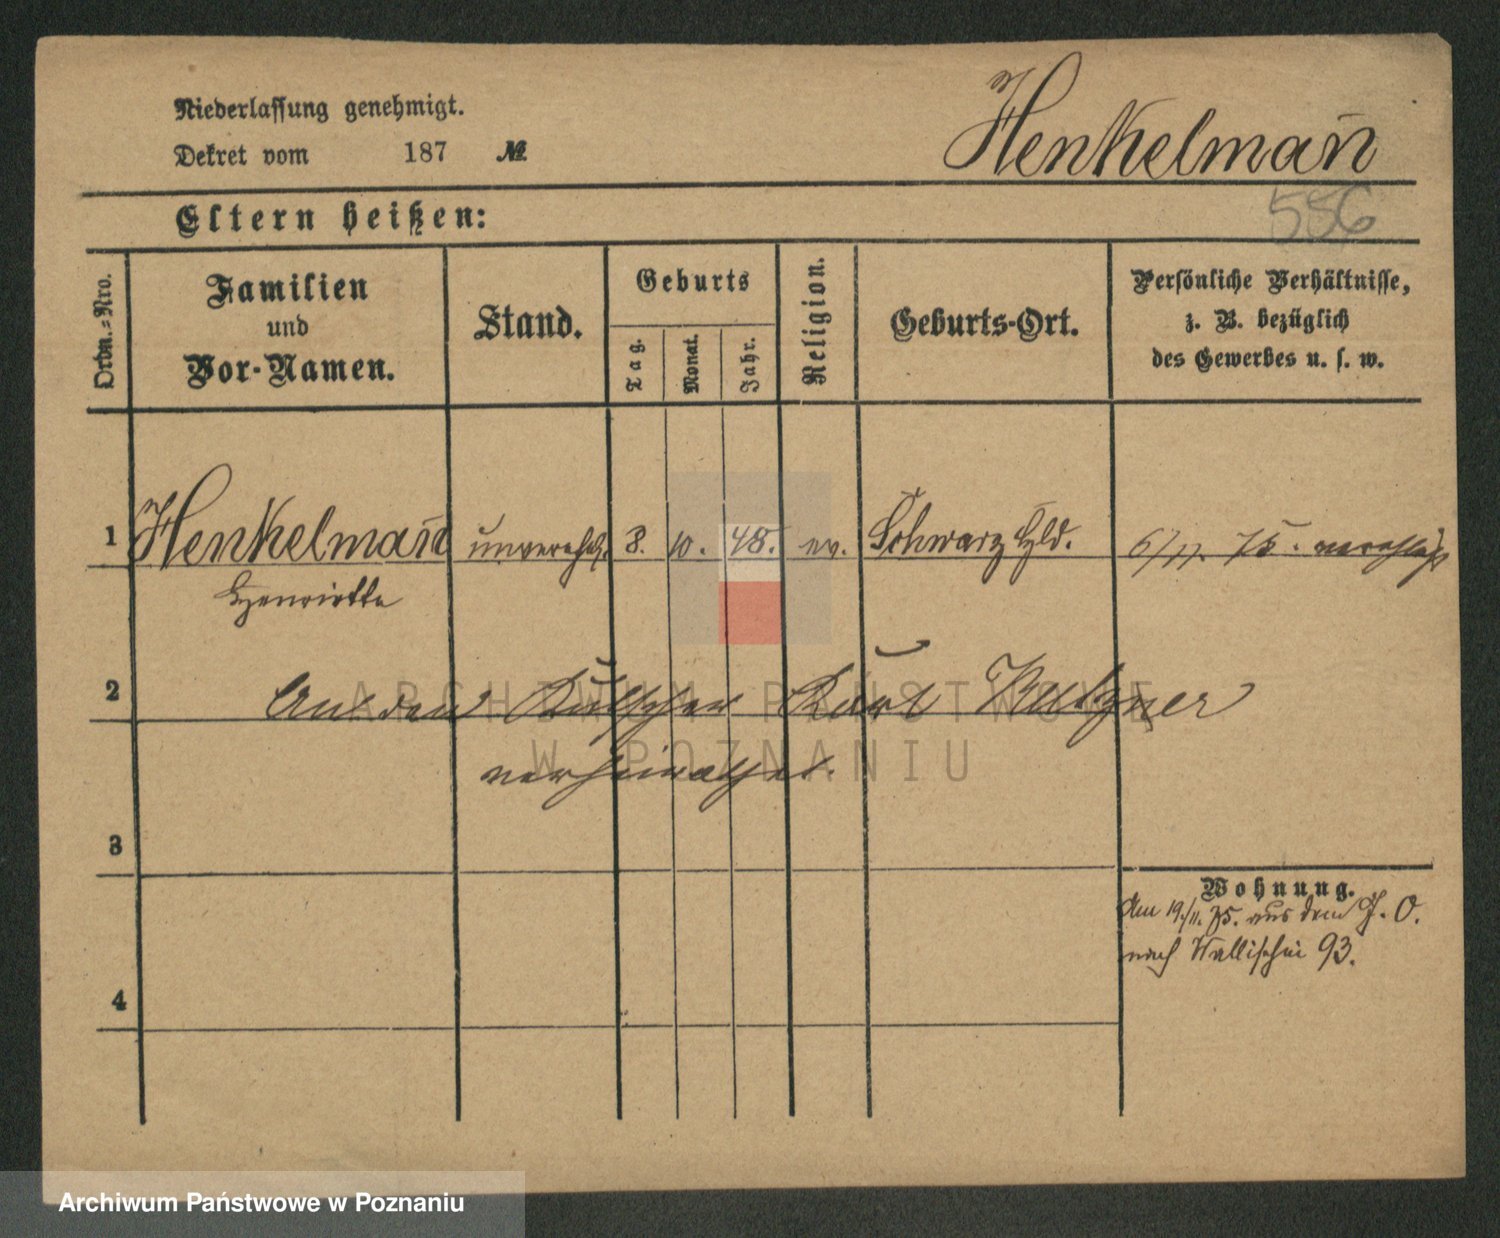 Niederlassung genehmigt.
Dekret vom 187 №
Henkelman̄
556
Eltern heißen:
Ordn.=Nro.
Familien
und
Vor-Namen.
Stand.
Geburts
Tag.
Monat.
Jahr.
Religion.
Geburts-Ort.
Persönliche Verhältnisse,
z. B. bezüglich
des Gewerbes u. s. w.
1 Henkelman̄ unverehel. 8. 10. 48. ev. Schwarz Hld. 6/11. 75.
Henriette
2 An den Kutscher Karl
verheirathet.
ARCHIWUM PAŃSTWOWE
W POZNANIU
3
Wohnung.
Am 19./11. 75. aus dem P. O.
nach Wallischei 93.
4
Archiwum Państwowe w Poznaniu